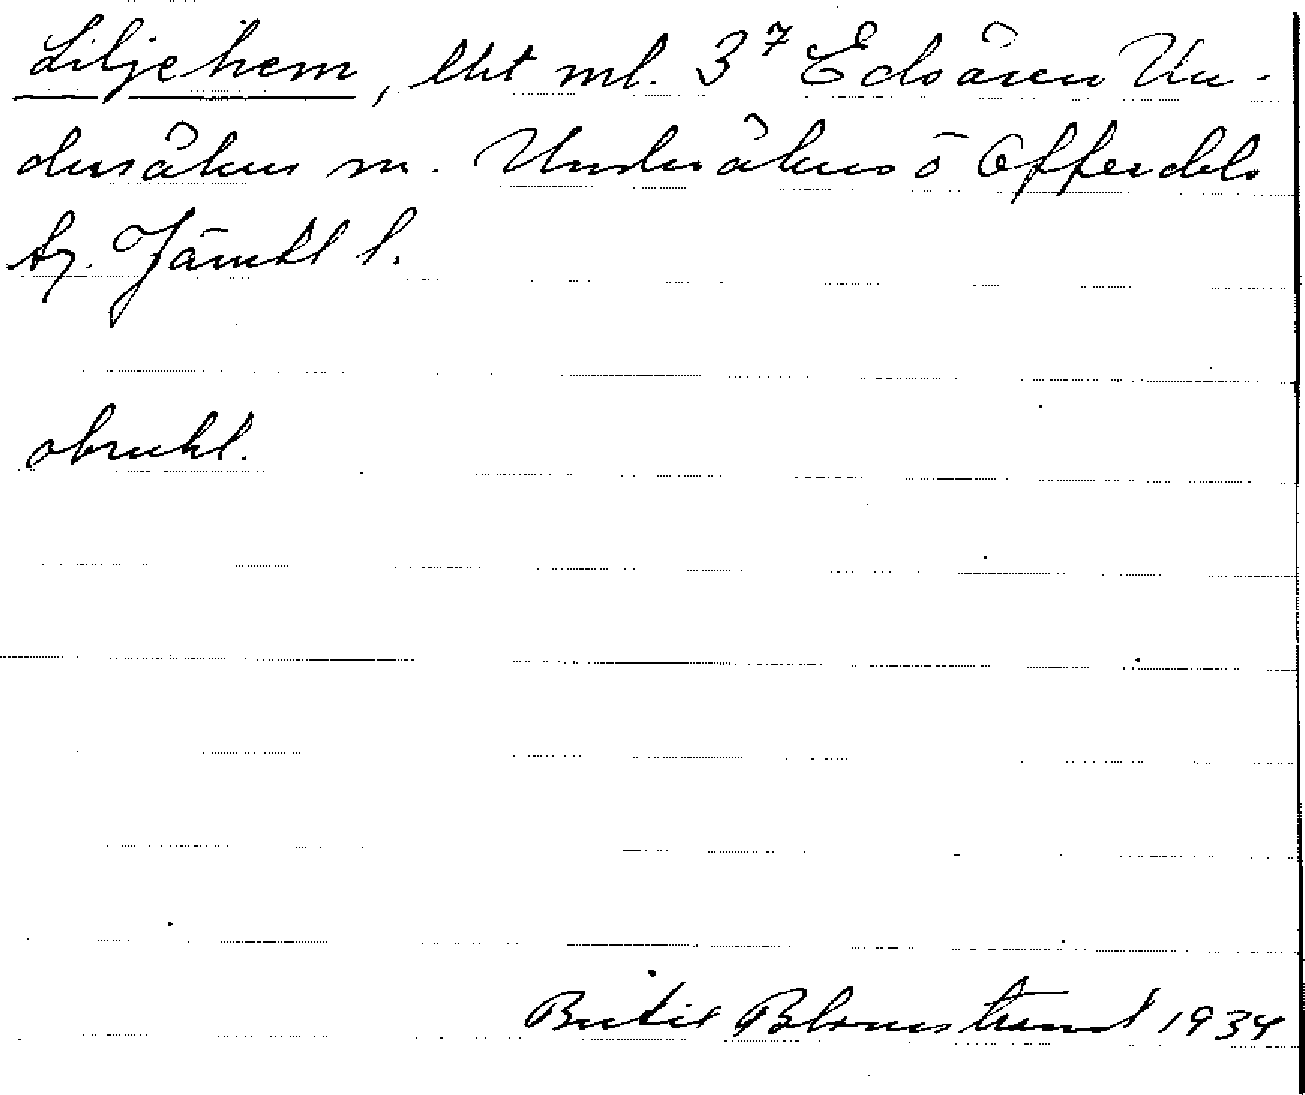 Liljehem, lht ml. 3⁷ Edsåsen Un-
dersåkers sn. Undersåkers o Offerdals
tg. Jämtl l.
obruktl.
Bertil Blomstrand 1934